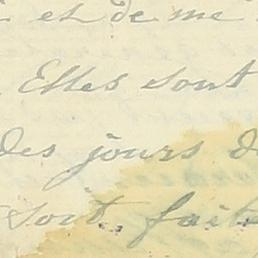 et de me
Elles sont
des jours d
soit, faite